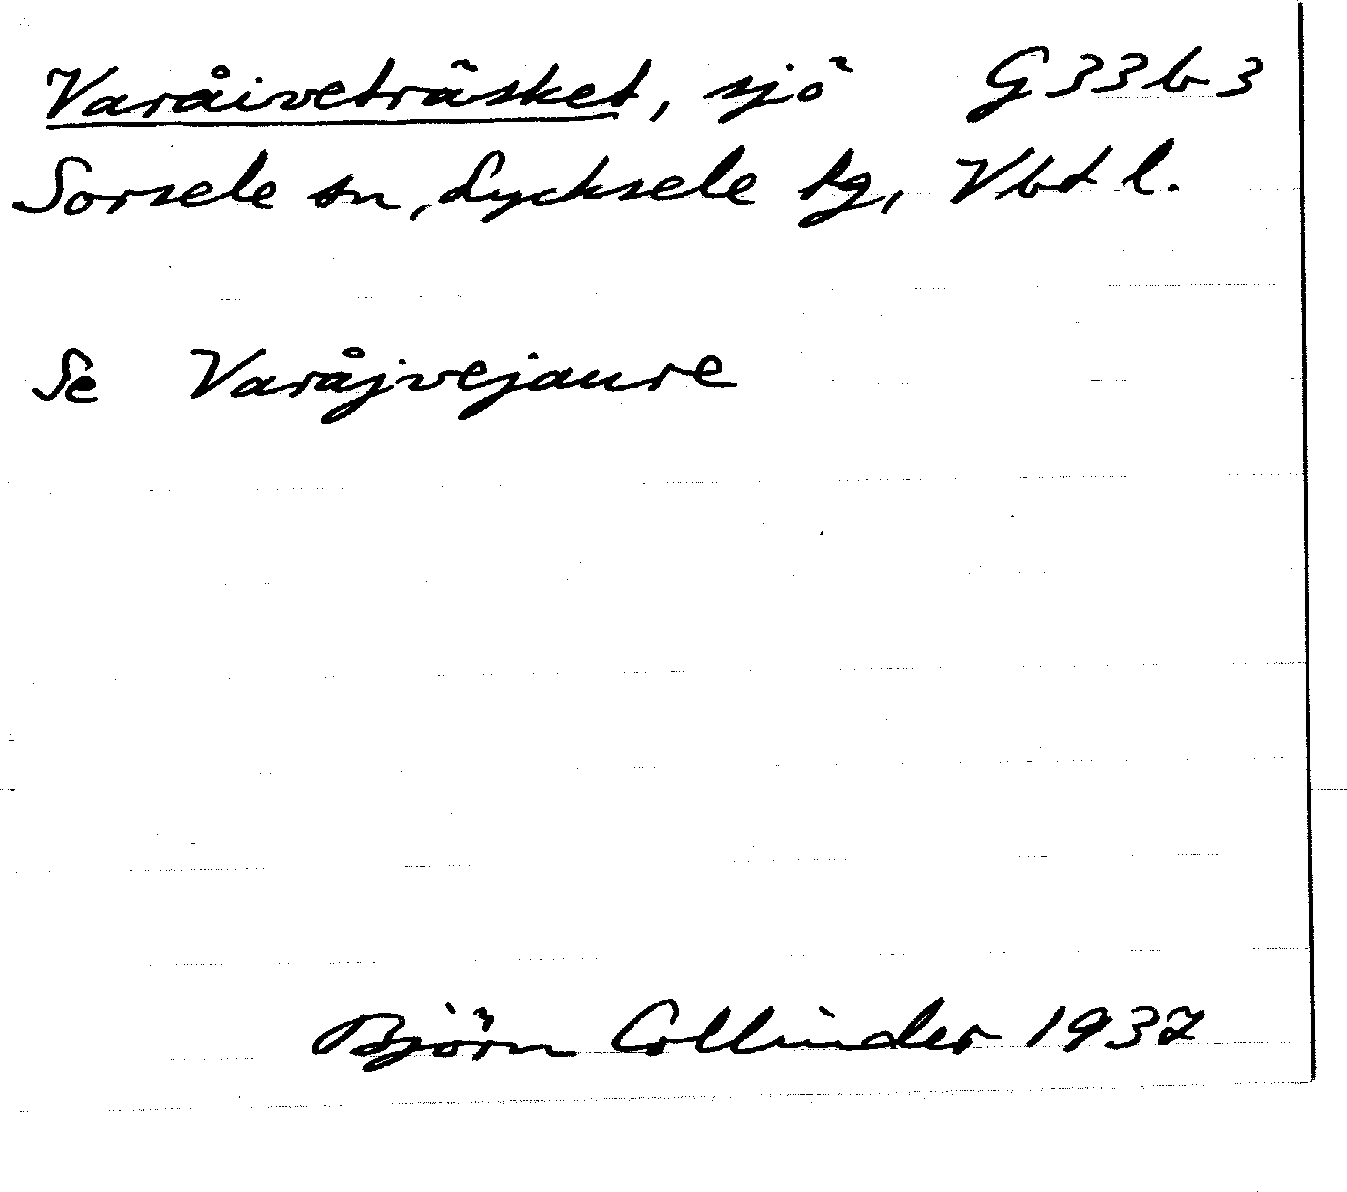 Varåiveträsket, sjö G33b3
Sorsele sn, Lycksele tg, Vbt l.
Se Varåjvejaure
Björn Collinder 1937